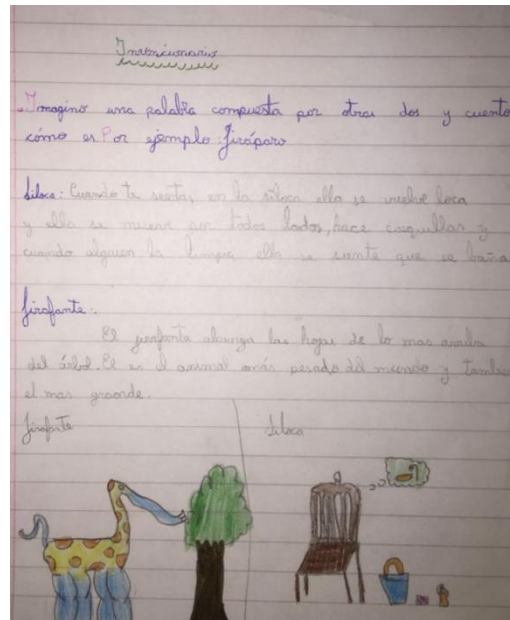 Inamicionario
Imagino una palabra compuesta por otras dos y cuento
cómo es Por ejemplo: Jirápano
Siloca: Cuando te sentas en la siloca ella se vuelve loca
y ella se mueve por todos lados, hace cosquillas y
cuando alguien la limpia ella se siente que se baña.
Jirafante:
El jirafante alcanza las hojas de lo mas arriba
del árbol. El es el animal más pesado del mundo y tambie
el mas graonde.
Jirafante
Siloca